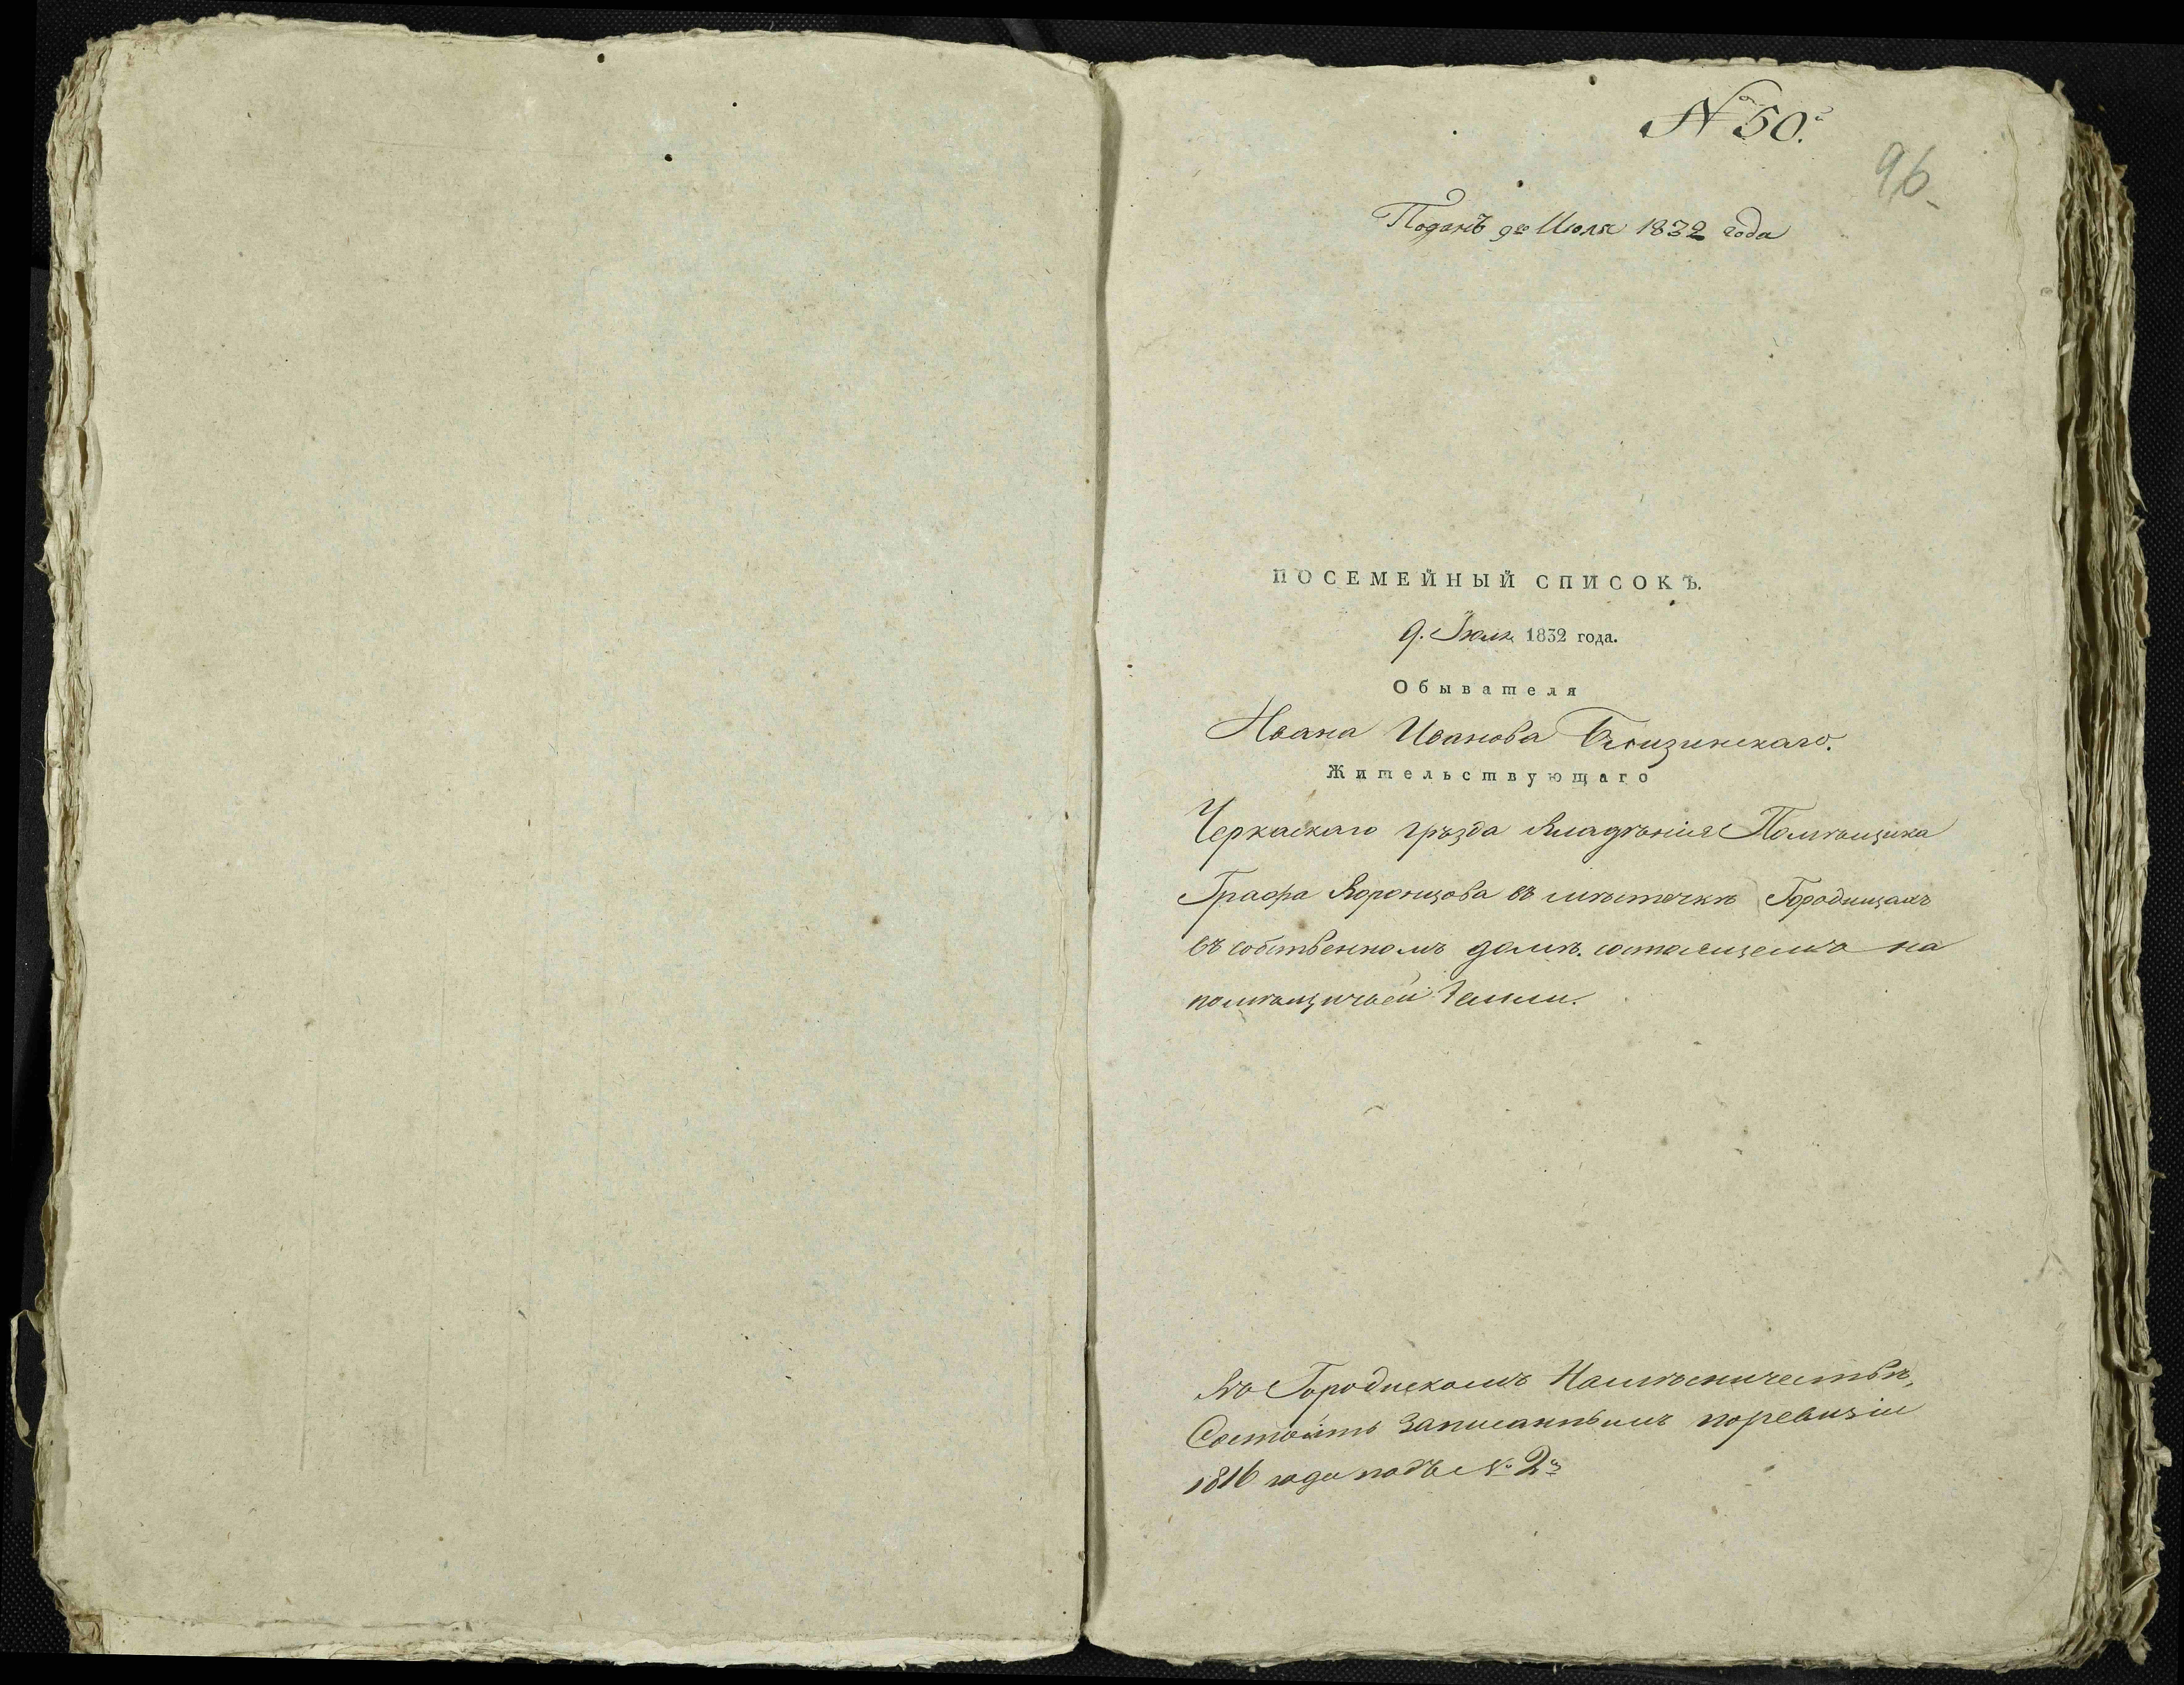 № 50.
96
Поданъ 9го Июля 1832 года
ПОСЕМЕЙНЫЙ СПИСОКЪ.
9. Июля 1832 года.
Обывателя
Ивана Иванова
Жительствующаго
Черкаскаго уѣзда владѣнія Помѣщика
Графа Воронцова въ мѣстечкѣ Городищахъ
въ собственномъ домѣ. состоящемъ на
помѣщичьей земли.
Въ Городискомъ Намѣсничествѣ,
Состоитъ записаннымъ поревизіи
1816 года подъ № 2